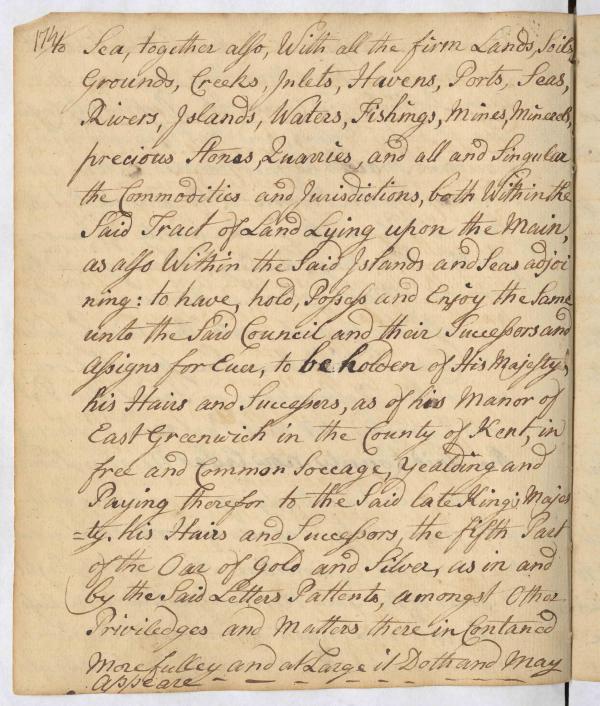 Sea, together also, With all the firm Lands, Soils,
Grounds, Creeks, Inlets, Havens, Ports, Seas,
Rivers, Islands, Waters, Fishings, Mines, Minerals,
precious Stones, Quarries, and all and Singular
the Commodities and Jurisdictions, both Within the
Said Tract of Land Lying upon the Main,
as also Within the Said Islands and Seas adjoi
ning: to have, hold, Possess and Enjoy the Same
unto the Said Council and their Successors and
Assigns for Ever, to be holden of His Majesty,
his Hairs and Successors, as of his Manor of
East Greenwich in the County of Kent, in
free and Common Soccage, Yealding and
Paying therefor to the Said late King's Majes
=ty. his Hairs and Successors, the fifth Part
of the Oar of Gold and Silver, as in and
by the Said Letters Pattents, amongst Other
Priviledges and Matters there in Contaned
More fulley and at Large it Doth and May
appeare